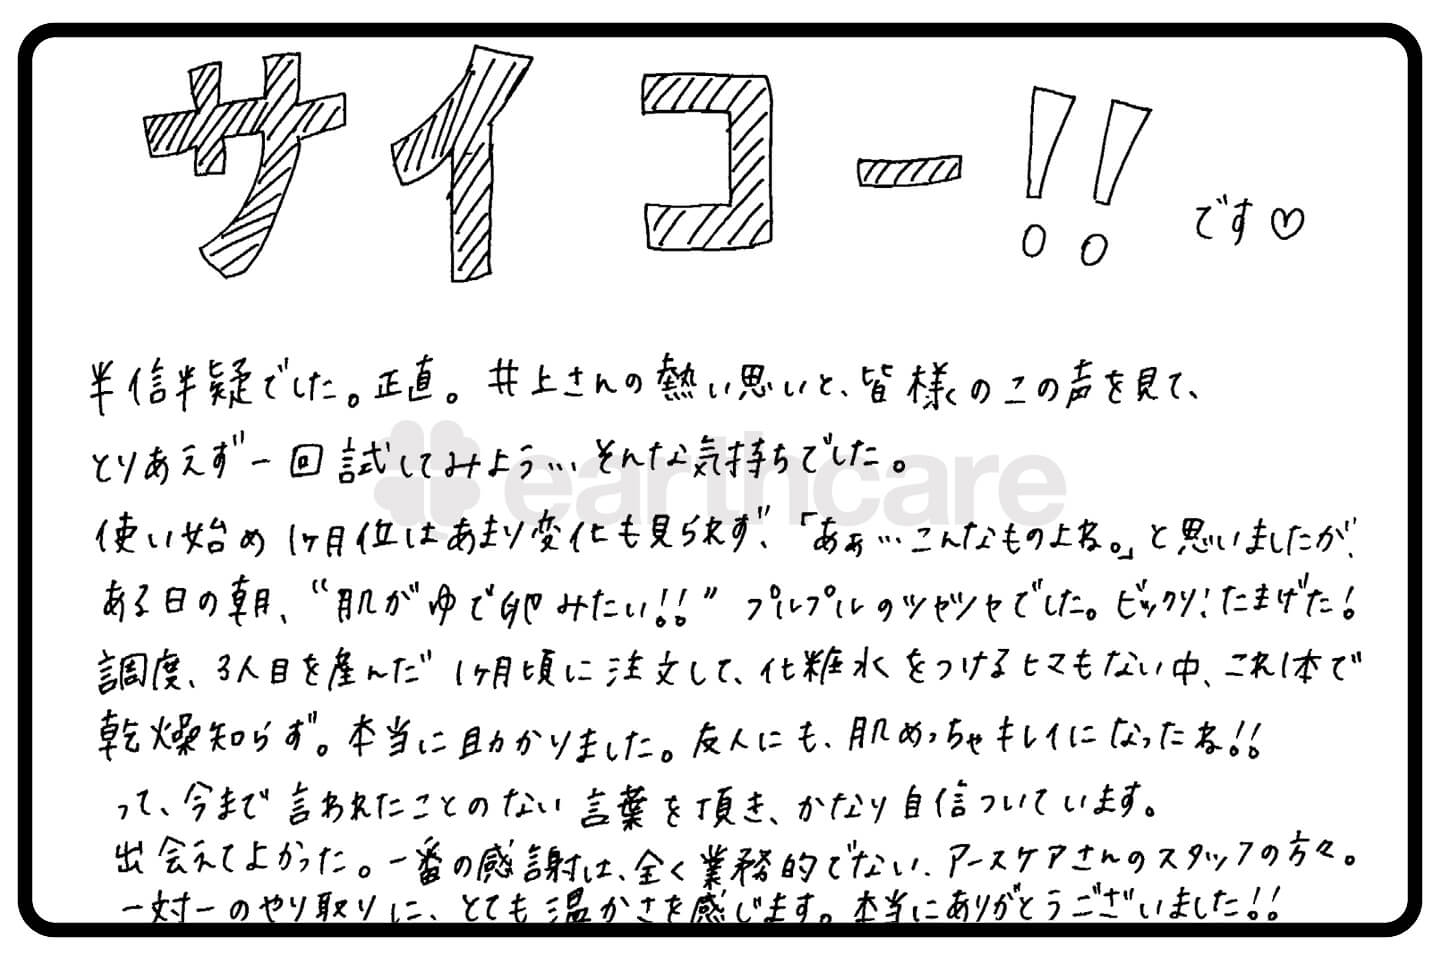 サイコー!! です♡
半信半疑でした。正直。井上さんの熱い思いと、皆様のこの声を見て、
とりあえず一回試してみよう…そんな気持ちでした。
earthcare
使い始め1ヶ月位はあまり変化も見られず、「あぁ…こんなものよね。」と思いましたが、
ある日の朝、“肌がゆで卵みたい!!” プルプルのツヤツヤでした。ビックリ!たまげた!
調度、3人目を産んだ1ヶ月頃に注文して、化粧水をつけるヒマもない中、これ1本で
乾燥知らず。本当に助かりました。友人にも、肌めっちゃキレイになったね!!
って、今まで言われたことのない言葉を頂き、かなり自信ついています。
出会えてよかった。一番の感謝は、全く業務的でない、アースケアさんのスタッフの方々。
一対一のやり取りに、とても温かさを感じます。本当にありがとうございました!!